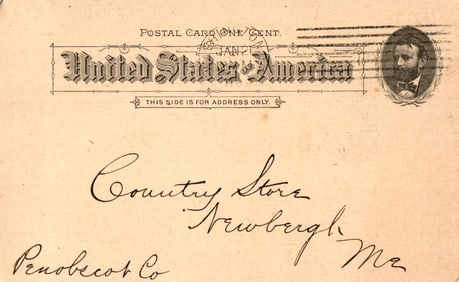 POSTAL CARD ONE CENT.
JAN 2
United States of America
THIS SIDE IS FOR ADDRESS ONLY.
Country Store
Newbergh
Me
Penobscot Co